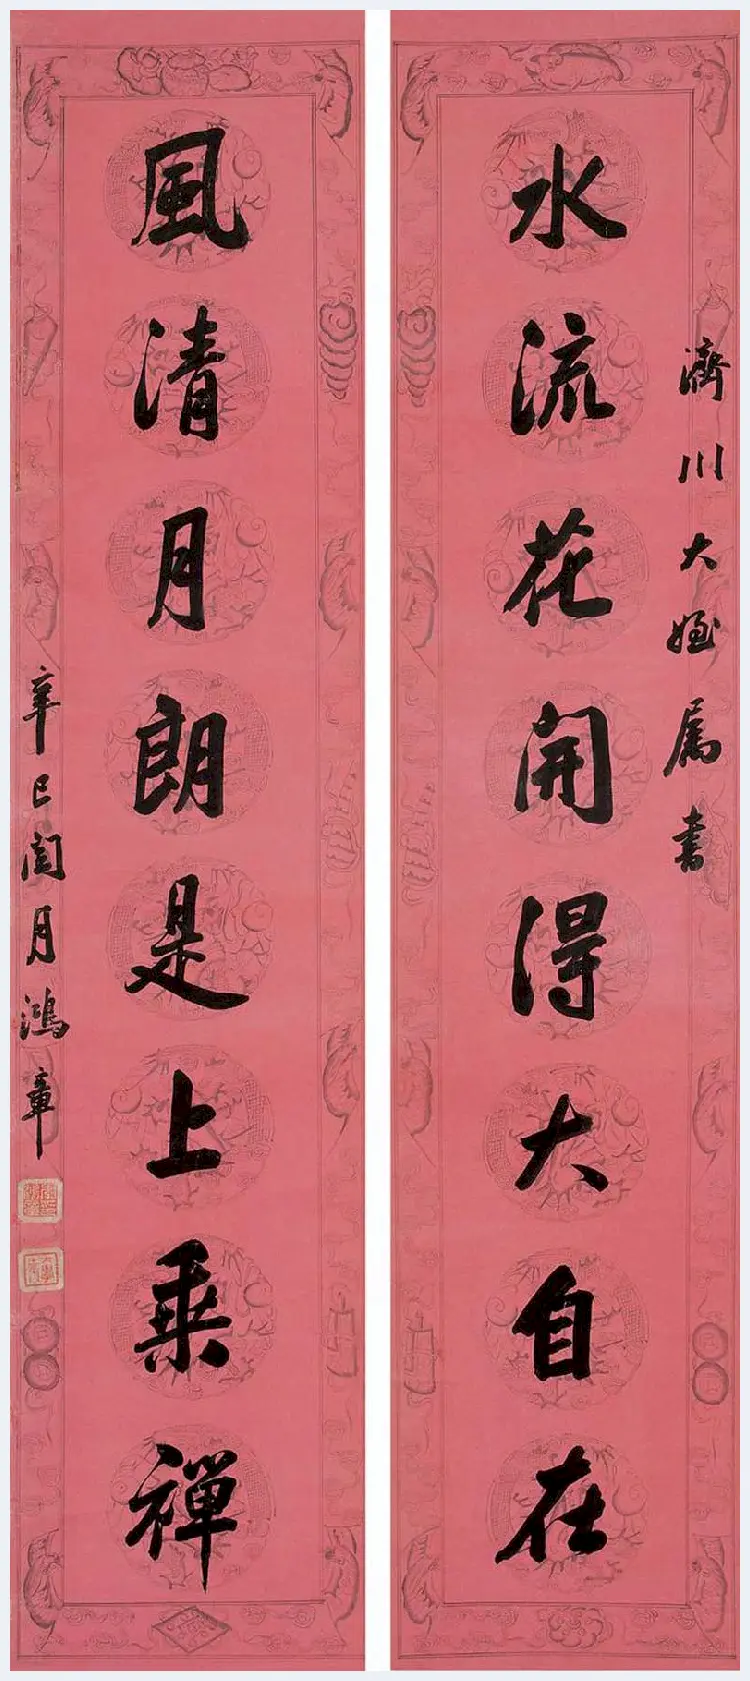 濟川大姪属書
水流花開得大自在
風清月朗是上乘禪
辛巳閏月鴻章